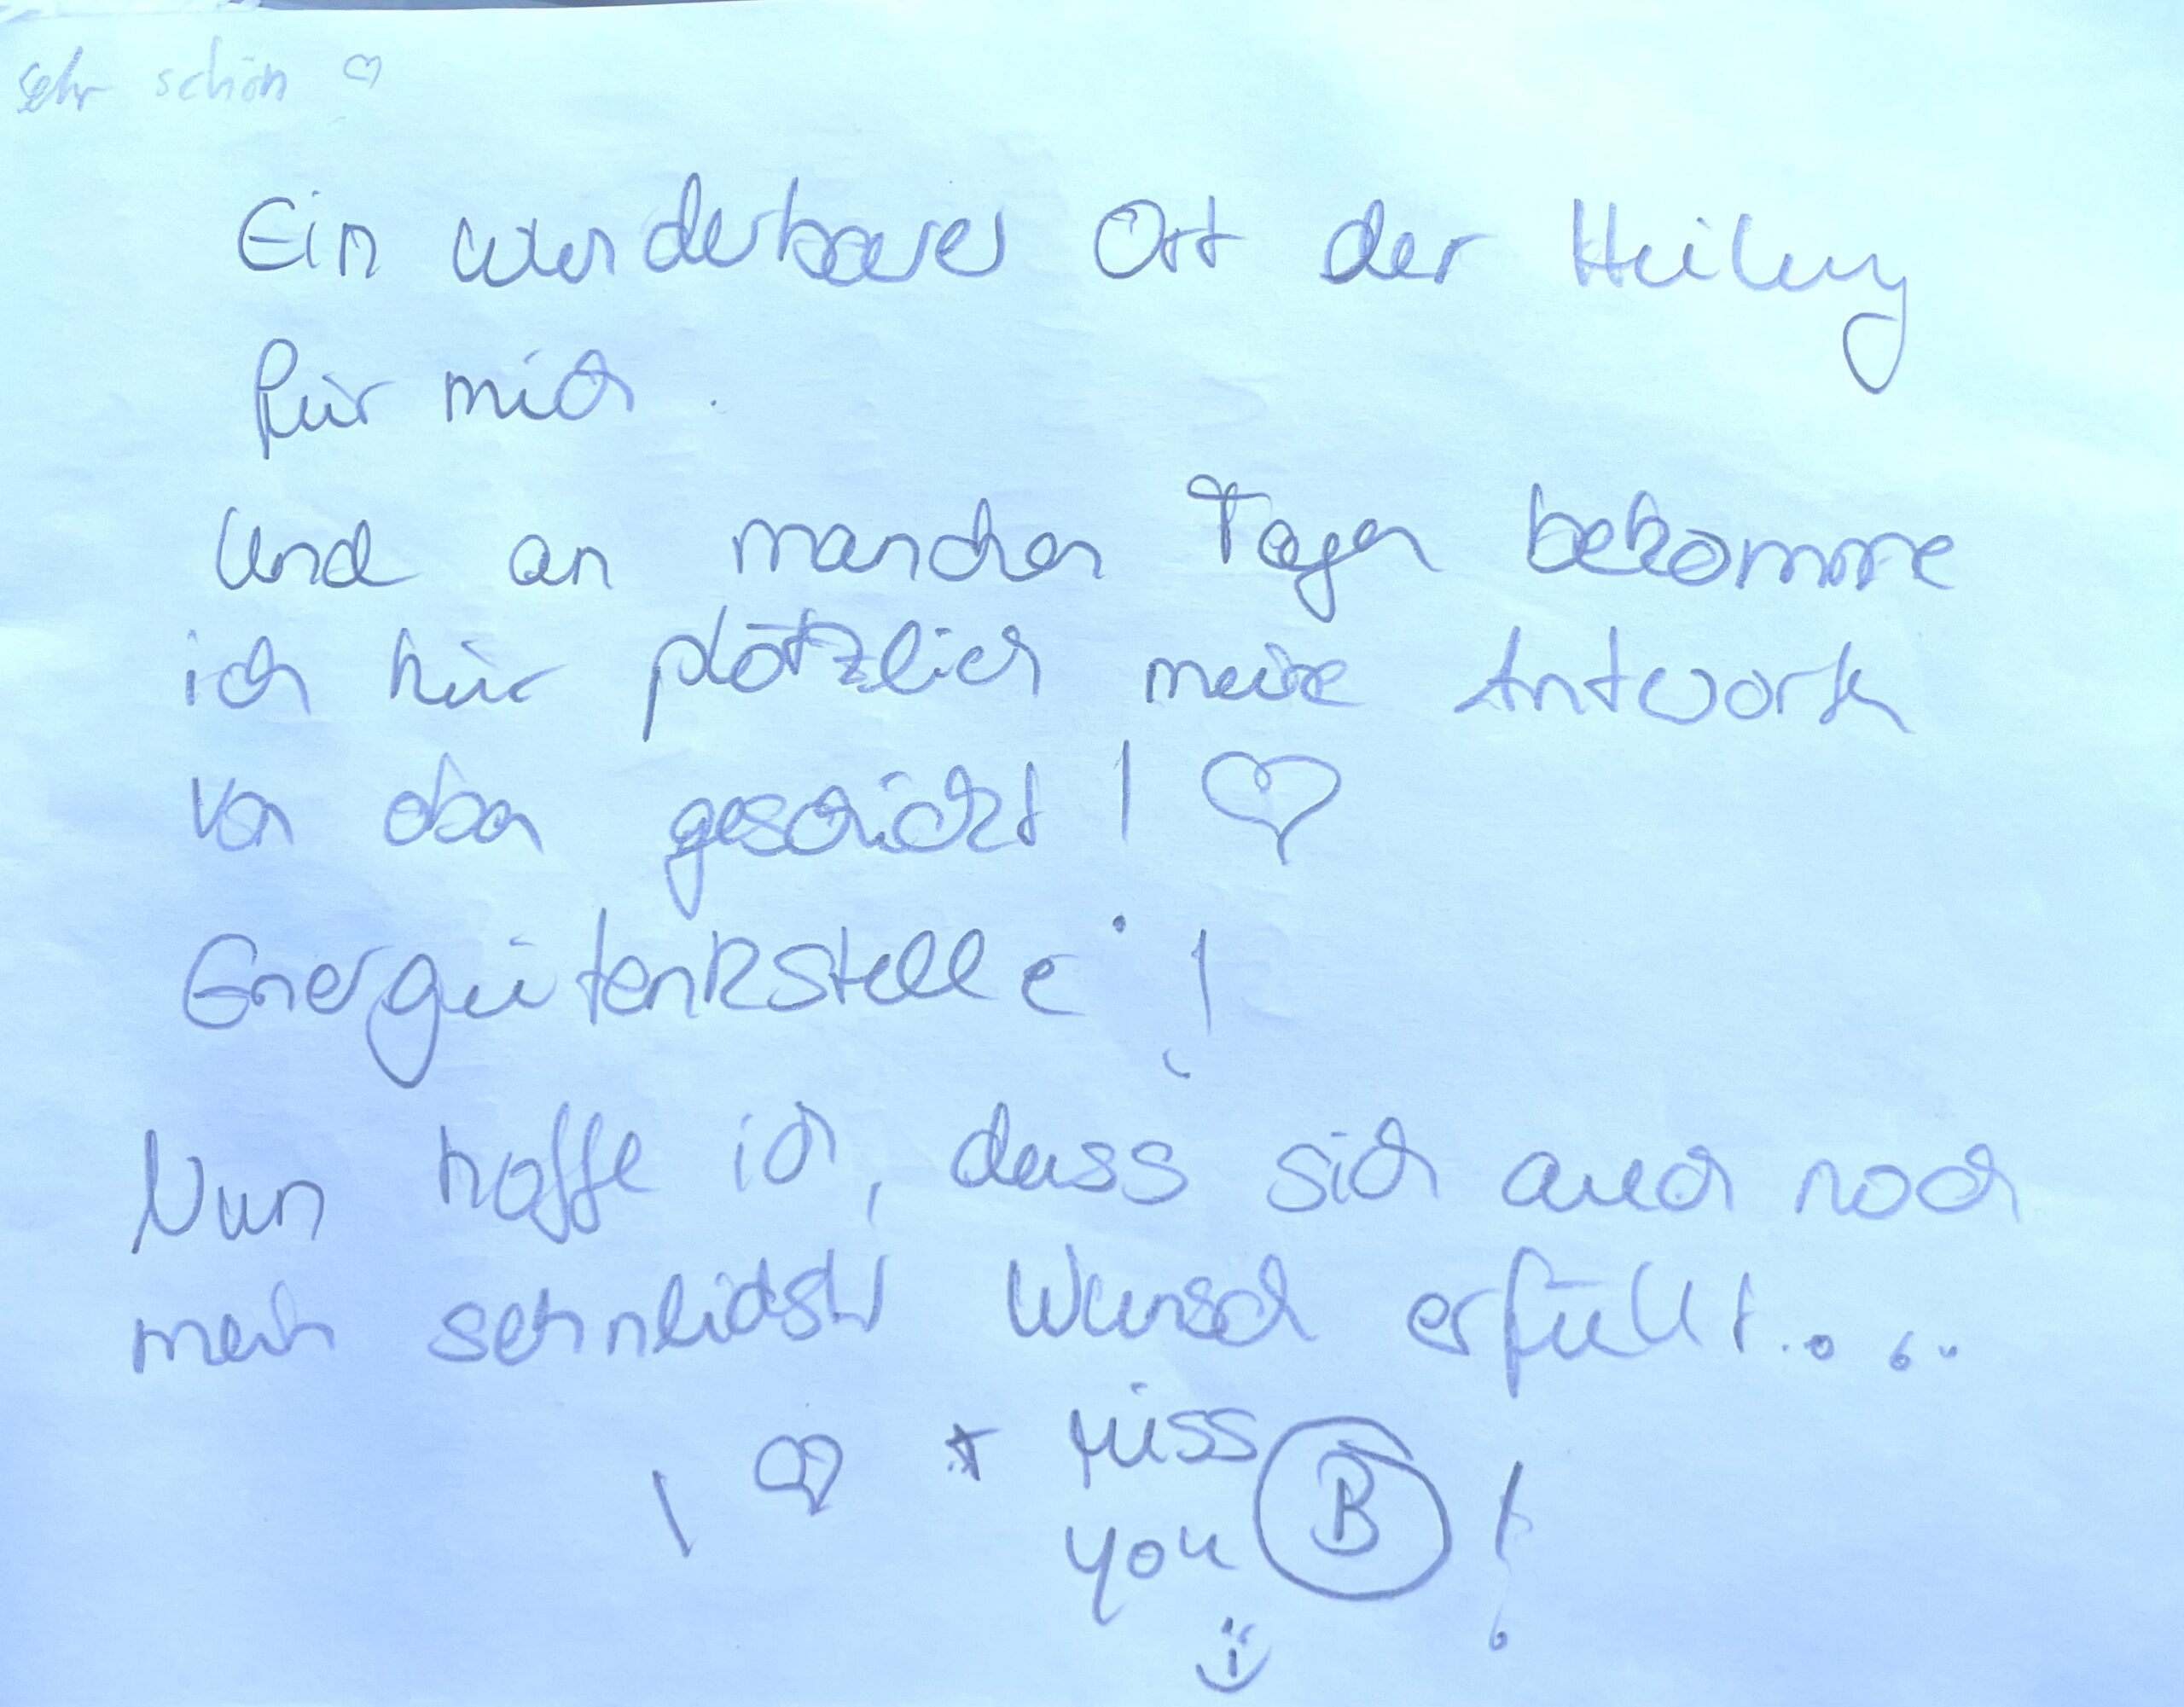 sehr schön ♡
Ein wunderbarer Ort der Heilung
für mich.
Und an manchen Tagen bekomme
ich hier plötzlich meine Antworten
von oben geschickt! ♡
Energietankstelle!
Nun hoffe ich, dass sich auch noch
mein sehnlichster Wunsch erfüllt....
I ♡ + miss
you B!